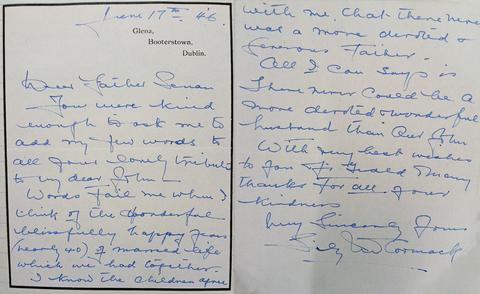 June 17th. 46.
Glena,
Booterstown,
Dublin.
Dear Father Senan
You were kind
enough to ask me to
add my few words to
all your lovely tribute
to my dear John.
Words fail me when I
think of the wonderful
blissfully happy years
(nearly 40) of married life
which we had together.
I know the children agree
with me. That there never
was a more devoted &
generous Father.
All I can say is
there never could be a
more devoted & wonderful
husband than our John
With very best wishes
to you Fr. Gerald & many
thanks for all your
kindness
Very Sincerely Yours
Lily McCormack